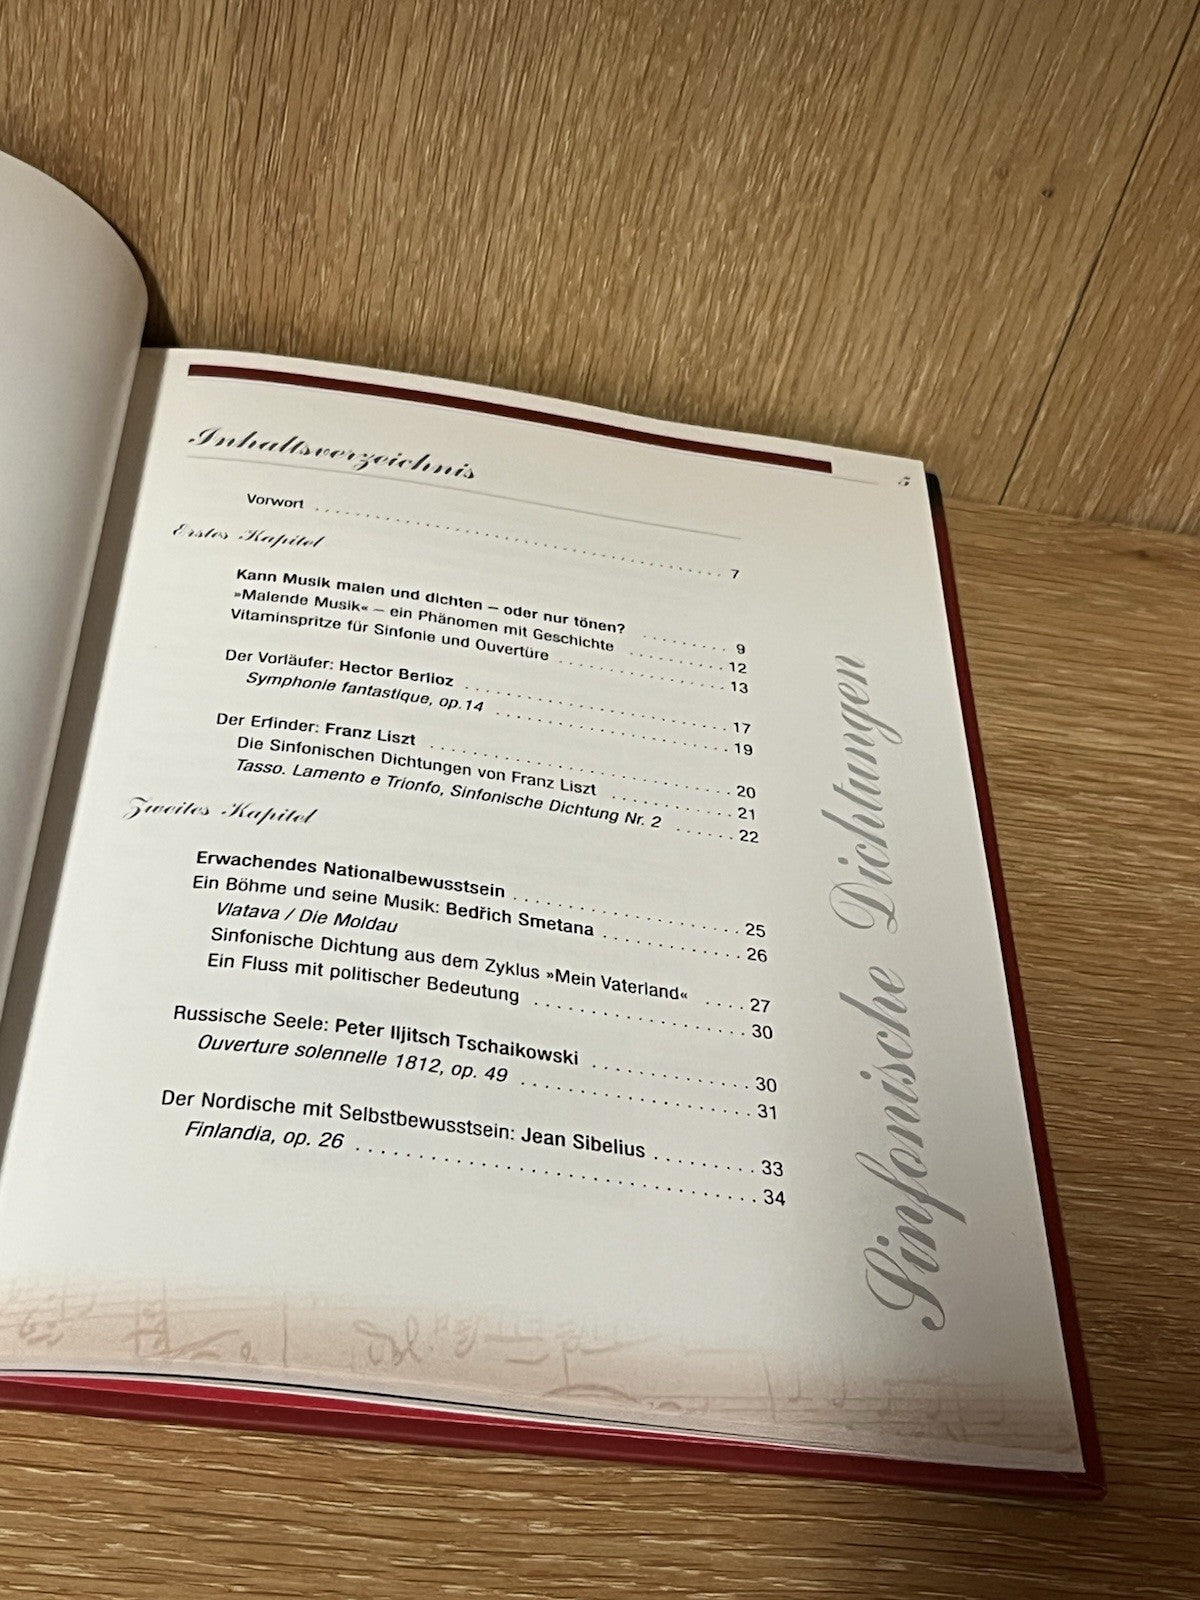 5
Inhaltsverzeichnis
Vorwort . . . . . . . . . . . . . . . . . . . . . . . . . . . . . . . . . . . . . . . . 7
Erstes Kapitel
Kann Musik malen und dichten – oder nur tönen? . . . . . . . . 9
»Malende Musik« – ein Phänomen mit Geschichte . . . . . . . . . 12
Vitaminspritze für Sinfonie und Ouvertüre . . . . . . . . . . . . . . . 13
Der Vorläufer: Hector Berlioz . . . . . . . . . . . . . . . . . . . . . . . . 17
Symphonie fantastique, op.14 . . . . . . . . . . . . . . . . . . . . . 19
Der Erfinder: Franz Liszt . . . . . . . . . . . . . . . . . . . . . . . . . . . 20
Die Sinfonischen Dichtungen von Franz Liszt . . . . . . . . . . . 21
Tasso. Lamento e Trionfo, Sinfonische Dichtung Nr. 2 . . . . . . 22
Zweites Kapitel
Erwachendes Nationalbewusstsein . . . . . . . . . . . . . . . . . . . . 25
Ein Böhme und seine Musik: Bedřich Smetana . . . . . . . . . . . . 26
Vlatava / Die Moldau
Sinfonische Dichtung aus dem Zyklus »Mein Vaterland« . . . . 27
Ein Fluss mit politischer Bedeutung . . . . . . . . . . . . . . . . . . 30
Russische Seele: Peter Iljitsch Tschaikowski . . . . . . . . . . . . . 30
Ouverture solennelle 1812, op. 49 . . . . . . . . . . . . . . . . . . . 31
Der Nordische mit Selbstbewusstsein: Jean Sibelius . . . . . . . . 33
Finlandia, op. 26 . . . . . . . . . . . . . . . . . . . . . . . . . . . . . . . 34
Sinfonische Dichtungen